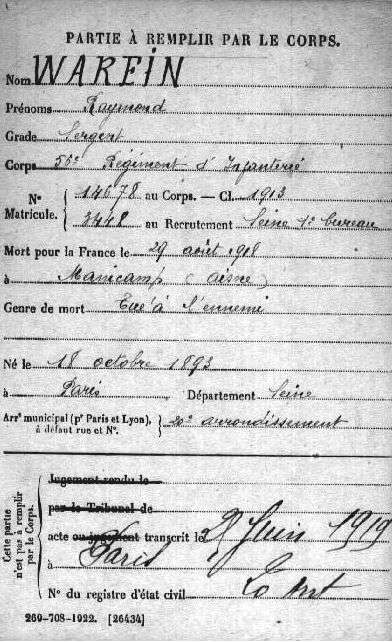 PARTIE À REMPLIR PAR LE CORPS.
Nom WARFIN
Prénoms Raymond
Grade Sergent
Corps Régiment d'Infanterie
N° Matricule. { 14678 au Corps. — Cl. 1913
2448 au Recrutement Seine 1er bureau
Mort pour la France le 29 août 1918
à Manicamp (Aisne)
Genre de mort Tué à l'ennemi
Né le 18 octobre 1893
à Paris Département Seine
Arrt municipal (pr Paris et Lyon), à défaut rue et N°. } 20e arrondissement
Cette partie n'est pas à remplir par le Corps.
Jugement rendu le
par le Tribunal de
acte ou jugement transcrit le Juin 1919
à Paris
N° du registre d'état civil 20 arrt
269-708-1922. [26434]